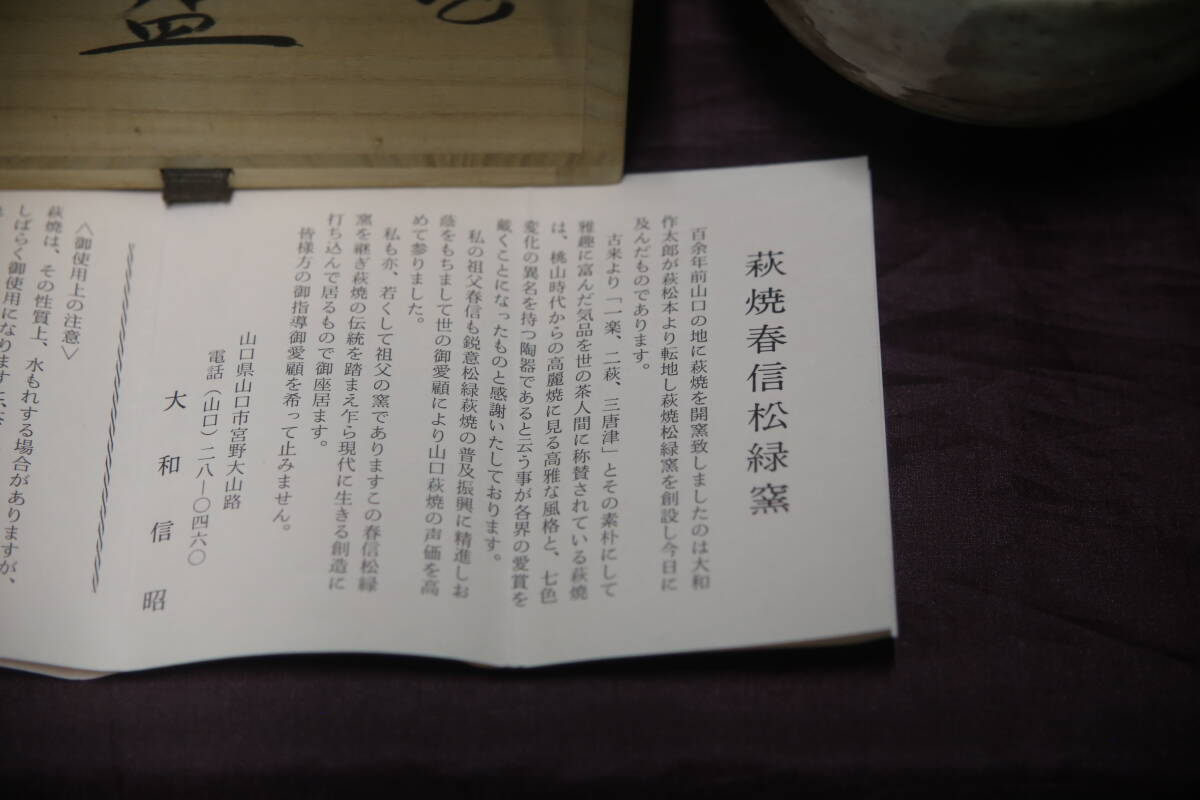 盃
萩焼春信松緑窯
百余年前山口の地に萩焼を開窯致しましたのは大和
作太郎が萩松本より転地し萩焼松緑窯を創設し今日に
及んだものであります。
古来より「一楽、二萩、三唐津」とその素朴にして
雅趣に富んだ気品を世の茶人間に称賛されている萩焼
は、桃山時代からの高麗焼に見る高雅な風格と、七色
変化の異名を持つ陶器であると云う事が各界の愛賞を
戴くことになったものと感謝いたしております。
私の祖父春信も鋭意松緑萩焼の普及振興に精進しお
蔭をもちまして世の御愛顧により山口萩焼の声価を高
めて参りました。
私も亦、若くして祖父の窯でありますこの春信松緑
窯を継ぎ萩焼の伝統を踏まえ乍ら現代に生きる創造に
打ち込んで居るもので御座居ます。
皆様方の御指導御愛顧を希って止みません。
山口県山口市宮野大山路
電話(山口)二八―〇四六〇
大和信昭
〈御使用上の注意〉
萩焼は、その性質上、水もれする場合がありますが、
しばらく御使用になりますと、